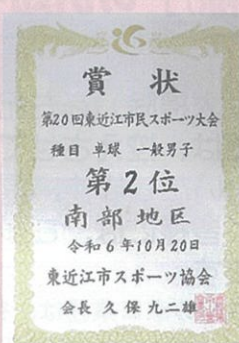 賞状
第20回東近江市民スポーツ大会
種目 卓球 一般男子
第2位
南部地区
令和6年10月20日
東近江市スポーツ協会
会長 久保九二雄